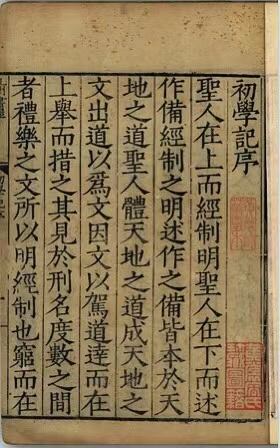 初學記序
聖人在上而經制明聖人在下而述
作備經制之明述作之備皆本於天
地之道聖人體天地之道成天地之
文出道以爲文因文以駕道達而在
上舉而措之其見於刑名度數之間
者禮樂之文所以明經制也窮而在